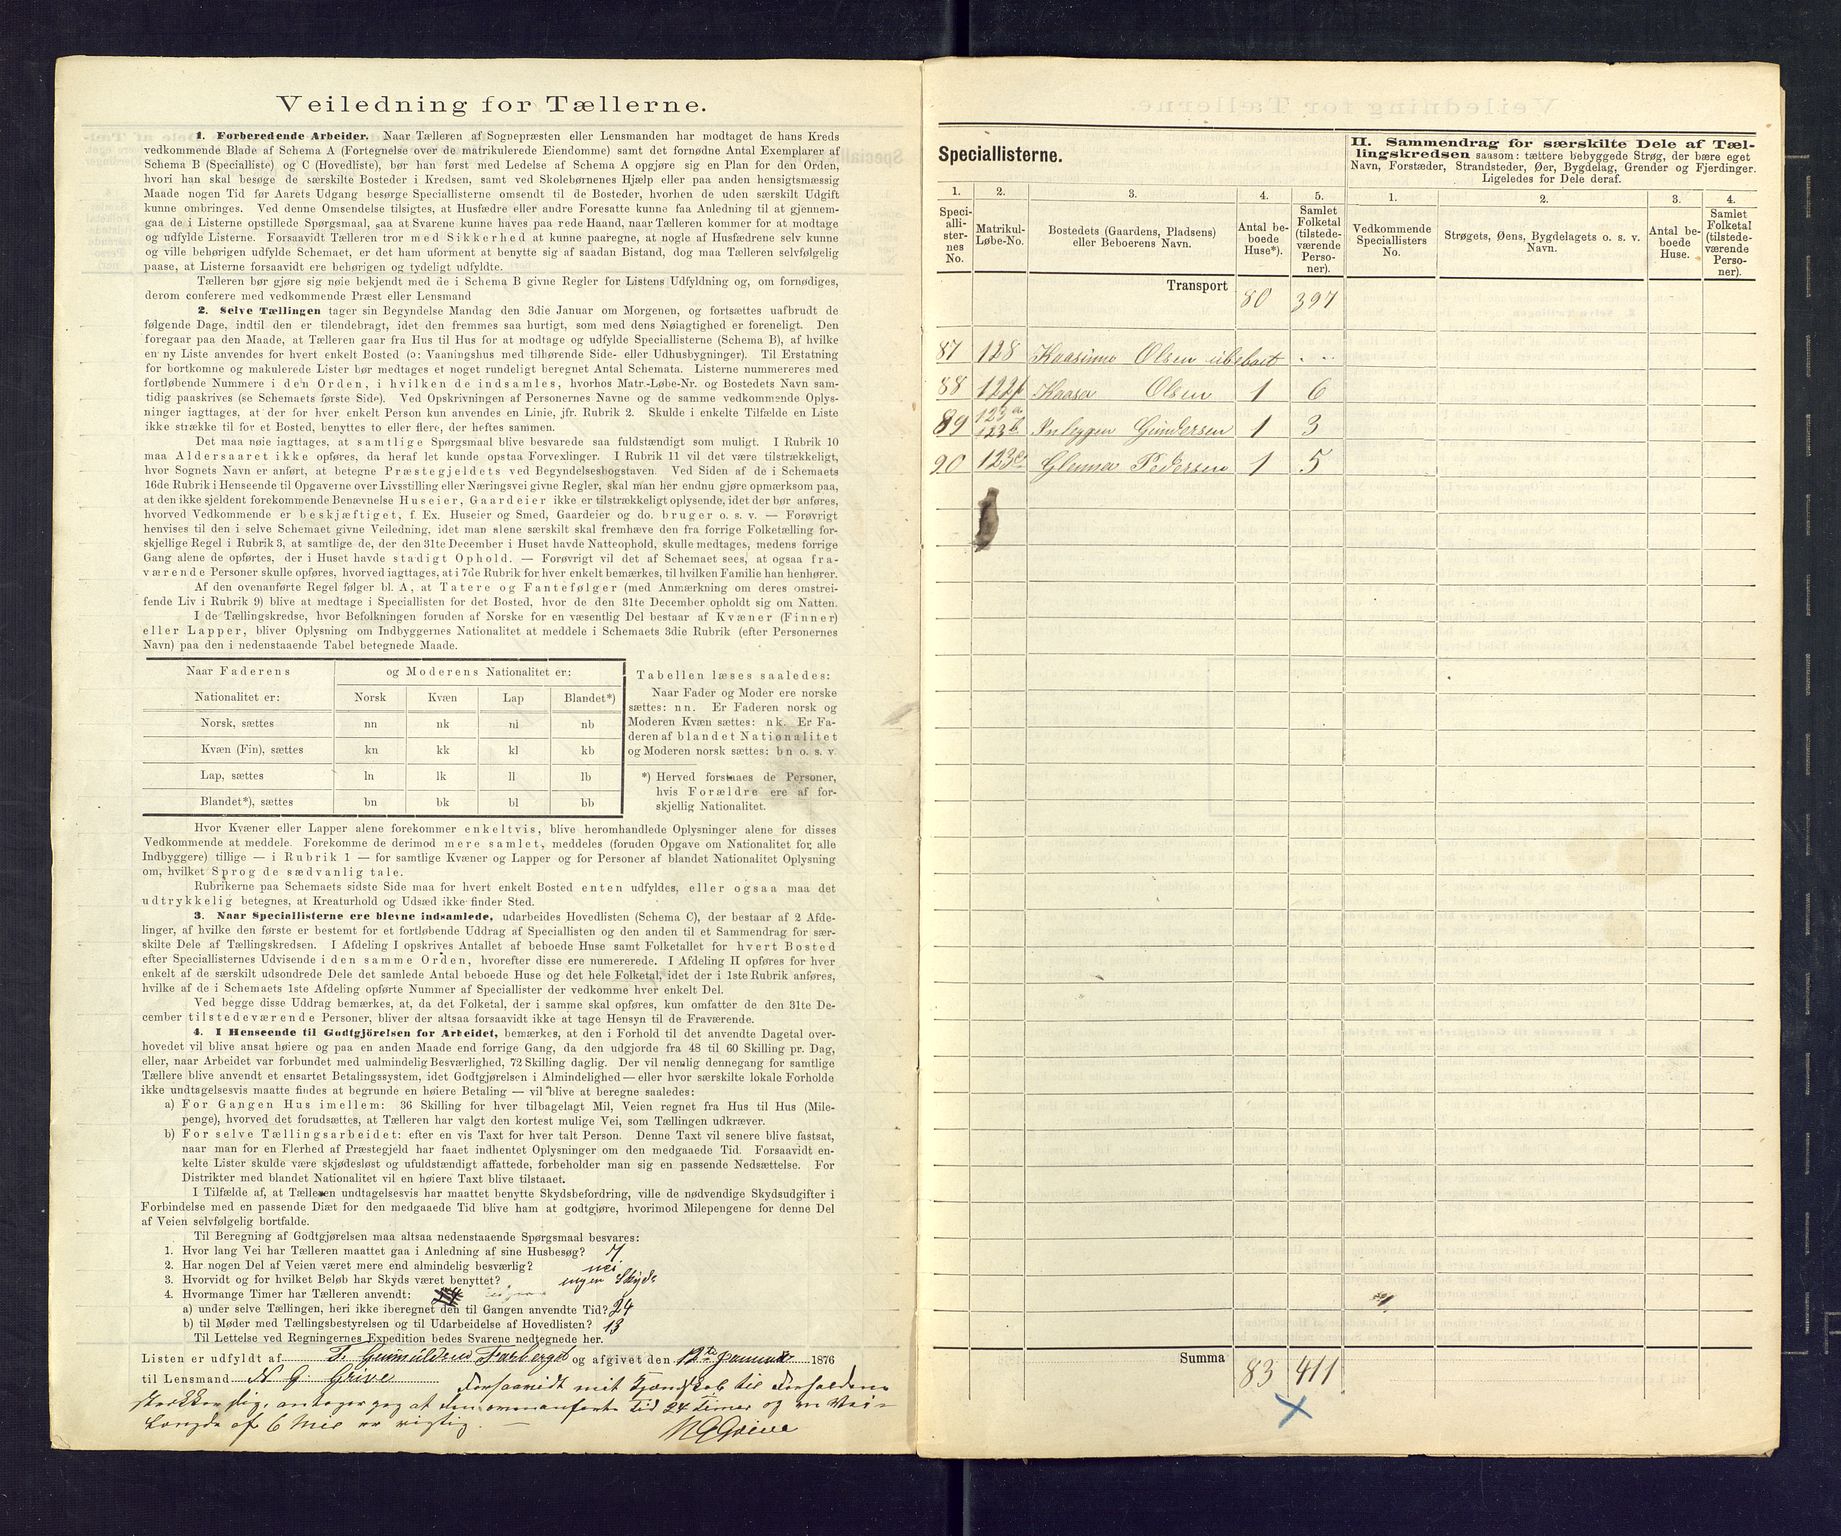 Veiledning for Tællerne.
1. Forberedende Arbeider. Naar Tælleren af Sognepræsten eller Lensmanden har modtaget de hans Kreds
vedkommende Blade af Schema A (Fortegnelse over de matrikulerede Eiendomme) samt det fornødne Antal Exemplarer af
Schema B (Specialliste) og C (Hovedliste), bør han først med Ledelse af Schema A opgjøre sig en Plan for den Orden,
hvori han skal besøge de særskilte Bosteder i Kredsen, samt ved Skolebørnenes Hjælp eller paa anden hensigtsmæssig
Maade nogen Tid før Aarets Udgang besørge Speciallisterne omsendt til de Bosteder, hvorhen de uden særskilt Udgift
kunne ombringes. Ved denne Omsendelse tilsigtes, at Husfædre eller andre Foresatte kunne faa Anledning til at gjennem-
gaa de i Listerne opstillede Spørgsmaal, saa at Svarene kunne haves paa rede Haand, naar Tælleren kommer for at modtage
og udfylde Listerne. Forsaavidt Tælleren tror med Sikkerhed at kunne paaregne, at nogle af Husfædrene selv kunne
og ville behørigen udfylde Schemaet, er det ham uforment at benytte sig af saadan Bistand, dog maa Tælleren selvfølgelig
paase, at Listerne forsaavidt ere behørigen og tydeligt udfyldte.
Tælleren bør gjøre sig nøie bekjendt med de i Schema B givne Regler for Listens Udfyldning og, om fornødiges,
derom conferere med vedkommende Præst eller Lensmand
2. Selve Tællingen tager sin Begyndelse Mandag den 3die Januar om Morgenen, og fortsættes uafbrudt de
følgende Dage, indtil den er tilendebragt, idet den fremmes saa hurtigt, som med dens Nøiagtighed er foreneligt. Den
foregaar paa den Maade, at Tælleren gaar fra Hus til Hus for at modtage og udfylde Speciallisterne (Schema B), af hvilke
en ny Liste anvendes for hvert enkelt Bosted (ɔ: Vaaningshus med tilhørende Side- eller Udhusbygninger). Til Erstatning
for bortkomne og makulerede Lister bør medtages et noget rundeligt beregnet Antal Schemata. Listerne nummereres med
fortløbende Nummere i den Orden, i hvilken de indsamles, hvorhos Matr.-Løbe-Nr. og Bostedets Navn sam-
tidig paaskrives (se Schemaets første Side). Ved Opskrivningen af Personernes Navne og de samme vedkommende Oplys-
ninger iagttages, at der for hver enkelt Person kun anvendes en Linie, jfr. Rubrik 2. Skulde i enkelte Tilfælde en Liste
ikke strække til for et Bosted, benyttes to eller flere, der heftes sammen.
Det maa nøie iagttages, at samtlige Spørgsmaal blive besvarede saa fuldstændigt som muligt. I Rubrik 10
maa Aldersaaret ikke opføres, da heraf let kunde opstaa Forvexlinger. I Rubrik 11 vil det være tilstrækkeligt,
hvor Sognets Navn er anført, at betegne Præstegjeldets ved Begyndelsesbogstaven. Ved Siden af de i Schemaets
16de Rubrik i Henseende til Opgaverne over Livsstilling eller Næringsvei givne Regler, skal man her endnu gjøre opmærksom paa,
at den ikke sjeldent forekommende Benævnelse Huseier, Gaardeier ikke er tilstrækkeligt oplysende, idet der bør anføres,
hvorved Vedkommende er beskjæftiget, f. Ex. Huseier og Smed, Gaardeier og do. bruger o. s. v. — Forøvrigt
henvises til den i selve Schemaet givne Veiledning, idet man alene særskilt skal fremhæve den fra forrige Folketælling for-
skjellige Regel i Rubrik 3, at samtlige de, der den 31te December i Huset havde Natteophold, skulle medtages, medens forrige
Gang alene de opførtes, der i Huset havde stadigt Ophold. — Forøvrigt vil det af Schemaet sees, at ogsaa fra-
værende Personer skulle opføres, hvorved iagttages, at i 7de Rubrik for hver enkelt bemærkes, til hvilken Familie han henhører.
Af den ovenanførte Regel følger bl. A., at Tatere og Fantefølger (med Anmærkning om deres omstrei-
fende Liv i Rubrik 9) blive at medtage i Speciallisten for det Bosted, hvor de den 31te December opholdt sig om Natten.
I de Tællingskredse, hvor Befolkningen foruden af Norske for en væsentlig Del bestaar af Kvæner (Finner)
eller Lapper, bliver Oplysning om Indbyggernes Nationalitet at meddele i Schemaets 3die Rubrik (efter Personernes
Navn) paa den i nedenstaaende Tabel betegnede Maade.
Naar Faderens og Moderens Nationalitet er:
Nationalitet er: Norsk Kvæn Lap Blandet*)
Norsk, sættes nn nk nl nb
Kvæn (Fin), sættes kn kk kl kb
Lap, sættes ln lk ll lb
Blandet*), sættes bn bk bl bb
Tabellen læses saaledes:
Naar Fader og Moder ere norske
sættes: nn. Er Faderen norsk og
Moderen Kvæn sættes: nk. Er Fa-
deren af blandet Nationalitet
og Moderen norsk sættes: bn o. s. v.
*) Herved forstaaes de Personer,
hvis Forældre ere af for-
skjellig Nationalitet.
Hvor Kvæner eller Lapper alene forekommer enkeltvis, blive heromhandlede Oplysninger alene for disses
Vedkommende at meddele. Forekomme de derimod mere samlet, meddeles (foruden Opgave om Nationalitet for alle
Indbyggere) tillige — i Rubrik 1 — for samtlige Kvæner og Lapper og for Personer af blandet Nationalitet Oplysning
om, hvilket Sprog de sædvanlig tale.
Rubrikerne paa Schemaets sidste Side maa for hvert enkelt Bosted enten udfyldes, eller ogsaa maa det
udtrykkelig betegnes, at Kreaturhold og Udsæd ikke finder Sted.
3. Naar Speciallisterne ere blevne indsamlede, udarbeides Hovedlisten (Schema C), der bestaar af 2 Afde-
linger, af hvilke den første er bestemt for et fortløbende Uddrag af Speciallisten og den anden til et Sammendrag for sær-
skilte Dele af Tællingskredsen. I Afdeling I opskrives Antallet af beboede Huse samt Folketallet for hvert Bosted
efter Speciallisternes Udvisende i den samme Orden, hvorefter disse ere numererede. I Afdeling II opføres for hver
enkelt af de særskilt udsondrede Dele det samlede Antal beboede Huse og det hele Folketal, idet der i 1ste Rubrik anføres,
hvilke af de i Schemaets 1ste Afdeling opførte Nummer af Speciallister der vedkomme hver enkelt Del.
Ved begge disse Uddrag bemærkes, at, da det Folketal, der i samme skal opføres, kun omfatter de den 31te De-
cember tilstedeværende Personer, bliver der altsaa forsaavidt ikke at tage Hensyn til de Fraværende.
4. I Henseende til Godtgjörelsen for Arbeidet, bemærkes, at den i Forhold til det anvendte Dagetal over-
hovedet vil blive ansat høiere og paa en anden Maade end forrige Gang, da den udgjorde fra 48 til 60 Skilling pr. Dag,
eller, naar Arbeidet var forbundet med ualmindelig Besværlighed, 72 Skilling daglig. Der vil nemlig dennegang for samtlige
Tællere blive anvendt et ensartet Betalingssystem, idet Godtgjørelsen i Almindelighed — eller hvor særskilte lokale Forholde
ikke undtagelsesvis maatte findes at begrunde en høiere Betaling — vil blive at beregne saaledes:
a) For Gangen Hus imellem: 36 Skilling for hver tilbagelagt Mil, Veien regnet fra Hus til Hus (Mile-
penge), hvorved det forudsættes, at Tælleren har valgt den kortest mulige Vei, som Tællingen udkræver.
b) For selve Tællingsarbeidet: efter en vis Taxt for hver talt Person. Denne Taxt vil senere blive fastsat,
naar man for en Flerhed af Præstegjeld har faaet indhentet Oplysninger om den medgaaede Tid. Forsaavidt en-
kelte Lister skulde være skjødesløst og ufuldstændigt affattede, forbeholder man sig en passende Nedsættelse. For
Distrikter med blandet Nationalitet vil en høiere Taxt blive tilstaaet.
I Tilfælde af, at Tælleren undtagelsesvis har maattet benytte Skydsbefordring, ville de nødvendige Skydsudgifter i
Forbindelse med en passende Diæt for den medgaaede Tid blive ham at godtgjøre, hvorimod Milepengene for denne Del
af Veien selvfølgelig bortfalde.
Til Beregning af Godtgjørelsen maa altsaa nedenstaaende Spørgsmaal besvares:
1. Hvor lang Vei har Tælleren maattet gaa i Anledning af sine Husbesøg? 7
2. Har nogen Del af Veien været mere end almindelig besværlig? nei
3. Hvorvidt og for hvilket Beløb har Skyds været benyttet? ingen Skyds
4. Hvormange Timer har Tælleren anvendt:
a) under selve Tællingen, heri ikke iberegnet den til Gangen anvendte Tid? 24
b) til Møder med Tællingsbestyrelsen og til Udarbeidelse af Hovedlisten? 13
Til Lettelse ved Regningernes Expedition bedes Svarene nedtegnede her.
Listen er udfyldt af T. Gunnuldsen Farberget og afgivet den 12te januar 1876
til Lensmand N G Grive
Forsaavidt mit Kjendskab til Forholdene
strækker sig, antager jeg at den ovenanførte Tid 24 Timer og en Vei-
længde af 6 Mil er rigtig. —
N G Grive
Speciallisterne.
II. Sammendrag for særskilte Dele af Tæl-
lingskredsen saasom: tættere bebyggede Strøg, der bære eget
Navn, Forstæder, Strandsteder, Øer, Bygdelag, Grender og Fjerdinger.
Ligeledes for Dele deraf.
1. 2. 3. 4. 5. 1. 2. 3. 4.
Speci-
alli-
ster-
nes
No.
Matrikul-
Løbe-No.
Bostedets (Gaardens, Pladsens)
eller Beboerens Navn.
Antal be-
boede
Huse*).
Samlet
Folketal
(tilstede-
værende
Perso-
ner).
Vedkommende
Speciallisters
No.
Strøgets, Øens, Bygdelagets o. s. v.
Navn.
Antal be-
boede
Huse.
Samlet
Folketal
(tilstede-
værende
Perso-
ner).
Transport 80 397
87 128 Kaasimo Olsen ubeboet . . .
88 122 Kaasa Olsen 1 6
89 123a 123b Gundersen 1 3
90 123c Glenna Pedersen 1 5
Summa 83 411